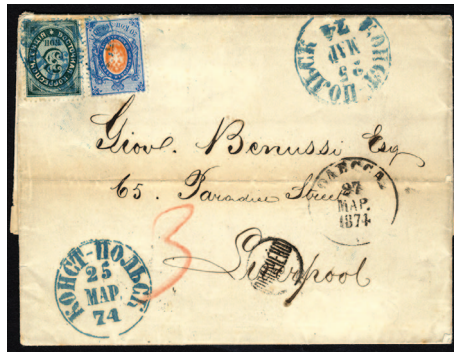 КОНСТ-ПОЛЬСК
25
МАР
74
Giovl. Benussi Esq
65. Paradise Street
ОДЕССА
27
МАР.
1874
3
Liverpool
КОНСТ-ПОЛЬСК
25
МАР
74